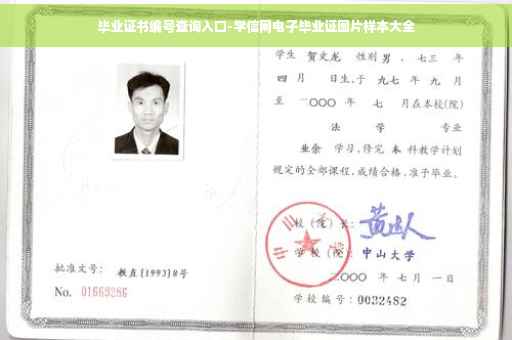 毕业证书编号查询入口-学信网电子毕业证图片样本大全
学生 贺文龙 性别 男 ,七三 年
四 月 日生,于 九七 年 九 月
至 二○○○ 年 七 月在本校(院)
法 学 专业
业余 学习,修完 本 科教学计划
规定的全部课程,成绩合格,准予毕业。
校(院)长:
学校(院): 中山大学
二○○○ 年 七 月 一 日
学校编号: 0032482
批准文号: 教直[1993]8号
No. 01669286